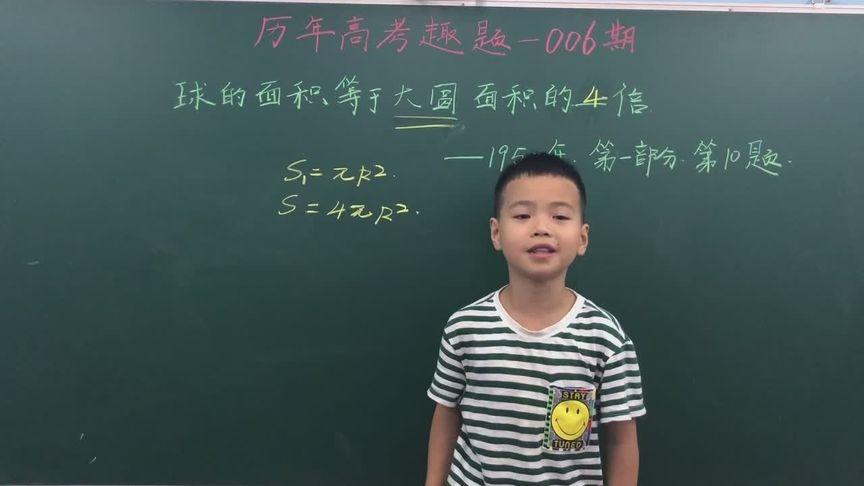 历年高考趣题-006期
球的面积等于大圆面积的4倍
——195 年.第一部分.第10题.
S₁=πR².
S=4πR².
STAY
TUNED